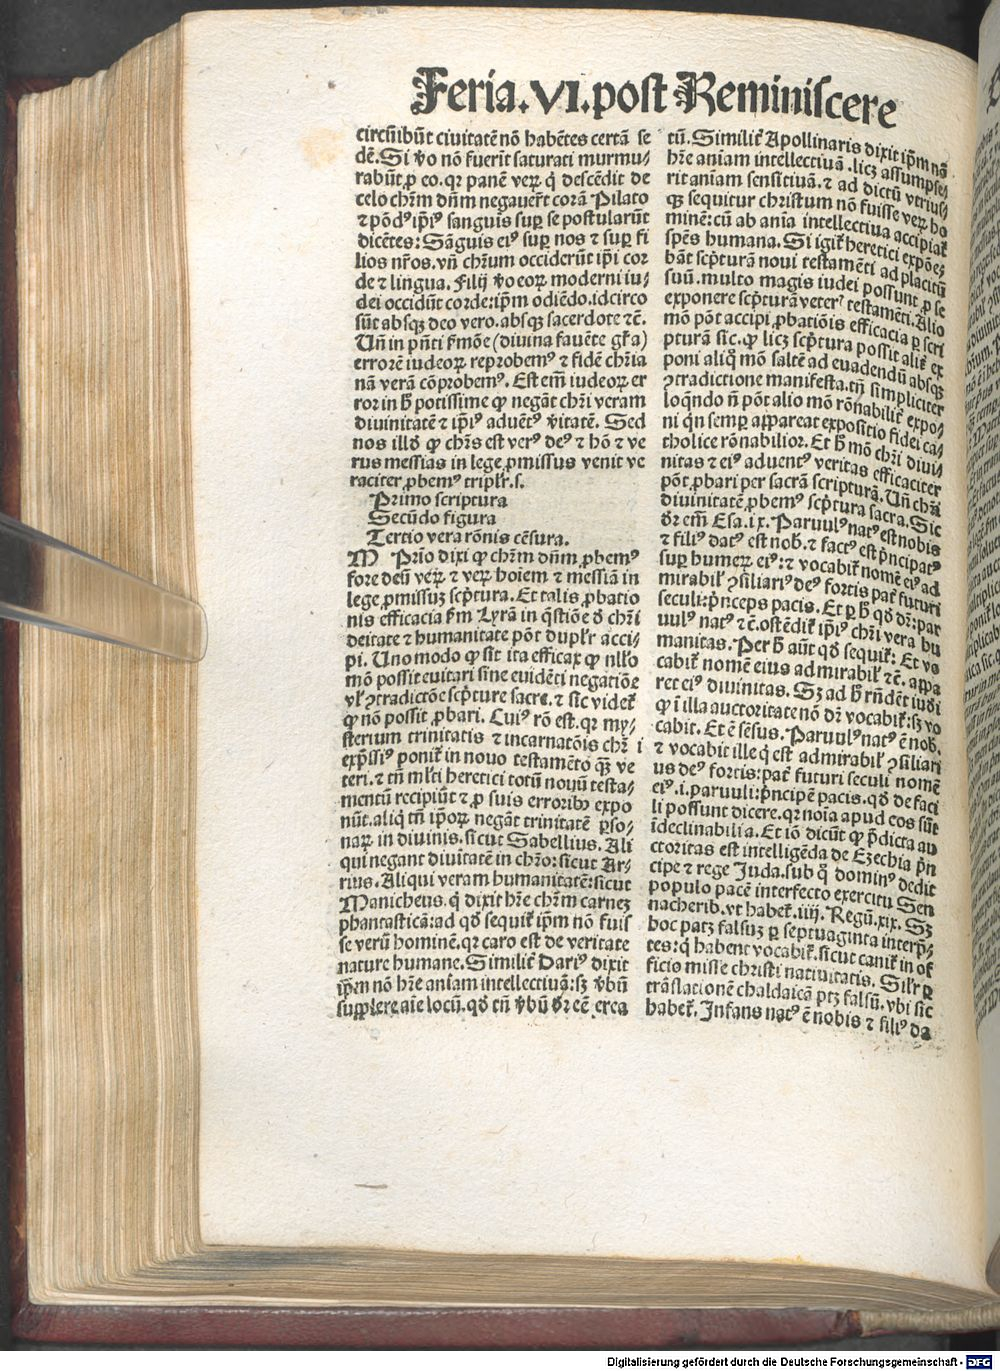 Feria.VI.post Reminiscere
circuībūt ciuitatē nō habētes certā se
dē. Si v̄o nō fuerīt saturati murmu⸗
rabūt ꝓ eo. qꝛ panē veꝝ q̇ descēdit de
celo chr̄m dn̄m negauer̄t corā Pilato
⁊ pōdꝰ ip̄iꝰ sanguis suꝑ se postularūt
dicētes: Sāguis eiꝰ suꝑ nos ⁊ suꝑ fi
lios nr̄os. vn̄ chr̄um occiderūt ip̄i cor
de ⁊ lingua. Filij v̄o eoꝝ moderni iu⸗
dei occidūt corde: ip̄m odiēdo. idcirco
sūt absqꝫ deo vero. absqꝫ sacerdote ⁊c̄.
Un̄ in pn̄ti s̄mōe (diuina fauēte gr̄a)
errorē iudeoꝝ reprobemꝰ ⁊ fidē chr̄ia
nā verā cōprobemꝰ. Est em̄ iudeoꝝ er
ror in h̄ potissime ꝙ negāt chr̄i veram
diuinitatē ⁊ ip̄iꝰ aduētꝰ v̄itatē. Sed
nos illd̄ ꝙ chr̄s est verꝰ deꝰ ⁊ hō ⁊ ve
rus messias in lege ꝓmissus venit ve
raciter ꝓbemꝰ tripl̄r. s.
Primo scriptura
Secūdo figura
Tertio vera rōnis cēsura.
M Prīo dixi ꝙ chr̄m dn̄m ꝓbemꝰ
fore deū veꝝ ⁊ veꝝ hoīem ⁊ messiā in
lege ꝓmissuꝫ sc̄ptura. Et talis ꝓbatio
nis efficacia s̄m Lyrā in q̄stiōe d̄ chr̄i
deitate ⁊ humanitate pōt dupl̄r acci⸗
pi. Uno modo ꝙ sit ita efficax ꝙ nll̄o
mō possit euitari sine euidēti negatiōe
vl̄ ꝯtradictōe sc̄pture sacre. ⁊ sic videt̄
ꝙ nō possit ꝓbari. Cuiꝰ rō est. qꝛ my⸗
sterium trinitatis ⁊ incarnatōis chr̄i
exp̄ssiꝰ ponit̄ in nouo testamēto qꝫ ve
teri. ⁊ tn̄ ml̄ti heretici totū nouū testa⸗
mentū recipiūt ⁊ ꝓ suis erroribꝫ expo
nūt. aliq̇ tn̄ ip̄oꝝ negāt trinitatē ꝑso⸗
naꝝ in diuinis. sicut Sabellius. Ali
qui negant diuitatē in chr̄o: sicut Ar⸗
rius. Aliqui veram humanitatē: sicut
Manicheus. q̇ dixit hr̄e chr̄m carneꝫ
phantasticā: ad qd̄ sequit̄ ip̄m nō fuis
se verū hominē. qꝛ caro est de veritate
nature humane. Similit̄ Dariꝰ dixit
ip̄m nō hr̄e aniam intellectiuā: sꝫ v̄bū
supplere aīe locū. qd̄ tn̄ v̄bū d̄r eē crea
tū. Similit̄ Apollinaris dixit ip̄m nō
hr̄e aniam intellectiuā. licꝫ assumpse⸗
rit aniam sensitiuā. ⁊ ad dictū vtrius⸗
qꝫ sequitur christum nō fuisse veꝝ ho
minē: cū ab anīa intellectiua accipiat̄
spēs humana. Si igit̄ heretici expōe⸗
bāt sc̄pturā noui testamēti ad placitū
suū. multo magis iudei possunt ꝑ se
exponere sc̄pturā veterꝭ testamēti. Alio
mō pōt accipi ꝓbatiōis efficacia ꝑ scri
pturā sic. ꝙ licꝫ sc̄ptura possit alit̄ ex
poni aliq̊ mō saltē ad euadendū absqꝫ
ꝯtradictione manifesta. tn̄ simpliciter
loqn̄do n̄ pōt alio mō rōnabilit̄ expo⸗
ni q̇n semꝑ appareat expositio fidei ca⸗
tholice rōnabilior. Et h̄ mō chr̄i diui⸗
nitas ⁊ eiꝰ aduentꝰ veritas efficaciter
pōt ꝓbari per sacrā scripturā. Un̄ chr̄i
diuinitatē ꝓbemꝰ sc̄ptura sacra. Sic
d̄r em̄ Esa. ix. Paruulꝰ natꝰ est nobis
⁊ filiꝰ datꝰ est nob̄. ⁊ factꝰ est p̄ncipatꝰ
suꝑ humeꝝ eiꝰ: ⁊ vocabit̄ nomē eiꝰ ad
mirabil̄ ꝯsiliariꝰ deꝰ fortis pat̄ futuri
seculi: p̄nceps pacis. Et ꝑ h̄ qd̄ dr̄: par
uulꝰ natꝰ ⁊ ⁊c̄. ostēdit̄ ip̄iꝰ chr̄i vera hu
manitas. Per h̄ aūt qd̄ sequit̄: Et vo
cabit̄ nomē eius admirabil̄ ⁊c̄. appa
ret eiꝰ diuinitas. Sꝫ ad h̄ rn̄dēt iud̄i
ꝙ ī illa auctoritate nō dr̄ vocabit̄: sꝫ vo
cabit. Et ē sēsus. Paruulꝰ natꝰ ē nob̄.
⁊ vocabit ille q̇ est admirabil̄ ꝯsiliari
us deꝰ fortis: pat̄ futuri seculi nomē
eiꝰ. i. paruuli: p̄ncipē pacis. qd̄ de faci
li possunt dicere. qꝛ noīa apud eos sūt
īdeclinabilia. Et iō dicūt ꝙ p̄dicta au
ctoritas est intelligēda de Ezechia p̄n
cipe ⁊ rege Juda. sub q̊ dominꝰ dedit
populo pacē interfecto exercitu Sen
nacherib. vt habet̄. iiij. Regū. xix. Sꝫ
hoc patꝫ falsuꝫ ꝑ septuaginta interp̄⸗
tes: q̇ habent vocabit̄. sicut canit̄ in of
ficio misse christi natiuitatis. Sil̄r ꝑ
trāslationē chaldaicā ptꝫ falsū. vbi sic
habet̄. Infans natꝰ ē nobis ⁊ filiꝰ da
Digitalisierung gefördert durch die Deutsche Forschungsgemeinschaft - DFG